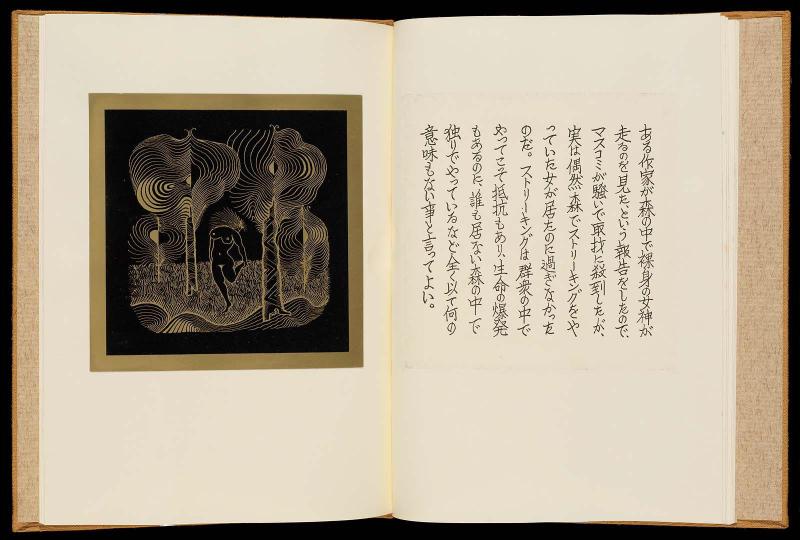 ある作家が森の中で裸身の女神が
走るのを見た、という報告をしたので、
マスコミが騒いで取材に殺到したが、
実は偶然、森でストリーキングをや
っていた女が居たのに過ぎなかった
のだ。ストリーキングは群衆の中で
やってこそ抵抗もあり、生命の爆発
もあるのに、誰も居ない森の中で
独りでやっているなど全く以て何の
意味もない事と言ってよい。